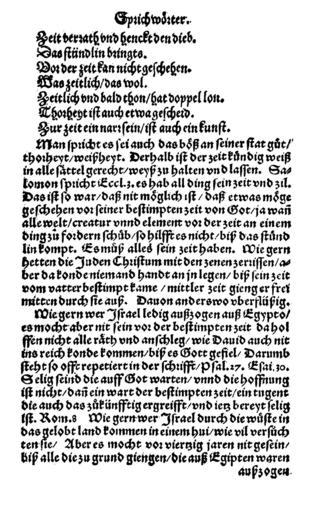 Sprichwörter.
Zeit verrath vnd henckt den dieb.
Das stündlin bringts.
Vor der zeit kan nicht geschehen.
Was zeitlich/das wol.
Zeitlich vnd bald thon/hat doppel lon.
Thorheyt ist auch etwa gescheid.
Zur zeit ein narr sein/ist auch ein kunst.
Man spricht es sei auch das böß an seiner stat gůt/
thorheyt/weißheyt. Derhalb ist der zeit kündig weiß
in alle sättel gerecht/weyß zu halten vnd lassen. Sa-
lomon spricht Eccl.3. es hab all ding sein zeit vnd zil.
Das ist so war/daß nit möglich ist/ daß etwas möge
geschehen vor seiner bestimpten zeit von Got/ja wañ
alle welt/creatur vnnd element vor der zeit an einem
ding zu fordern schüb/so hilffts nicht/biß das stünd
lin kompt. Es můß alles sein zeit haben. Wie gern
hetten die Juden Christum mit den zenen zerrissen/a-
ber da konde niemand handt an jn legen/biß sein zeit
vom vatter bestimpt kame/mittler zeit gieng er frei
mitten durch sie auß. Dauon anderswo vberflüßig.
Wie gern wer Israel ledig außzogen auß Egypto/
es mocht aber nit sein vor der bestimpten zeit da hol
ffen nicht alle räth vnd anschleg/wie Dauid auch nit
ins reich konde kommen/biß es Gott gefiel/Darumb
steht so offt repetiert in der schrifft/Psal.27. Esai.30.
Selig seind die auff Got warten/vnnd die hoffnung
ist nicht/dañ ein wart der bestimpten zeit/ein tugent
die auch das zůkünfftig ergreifft/vnd ietz bereyt selig
ist. Rom.8 Wie gern wer Israel durch die wüste in
das gelobt land kommen in einem hui/wie vil versůch
ten sie/ Aber es mocht vor viertzig jaren nit gesein/
biß alle die zu grund giengen/die auß Egipten waren
außzogen